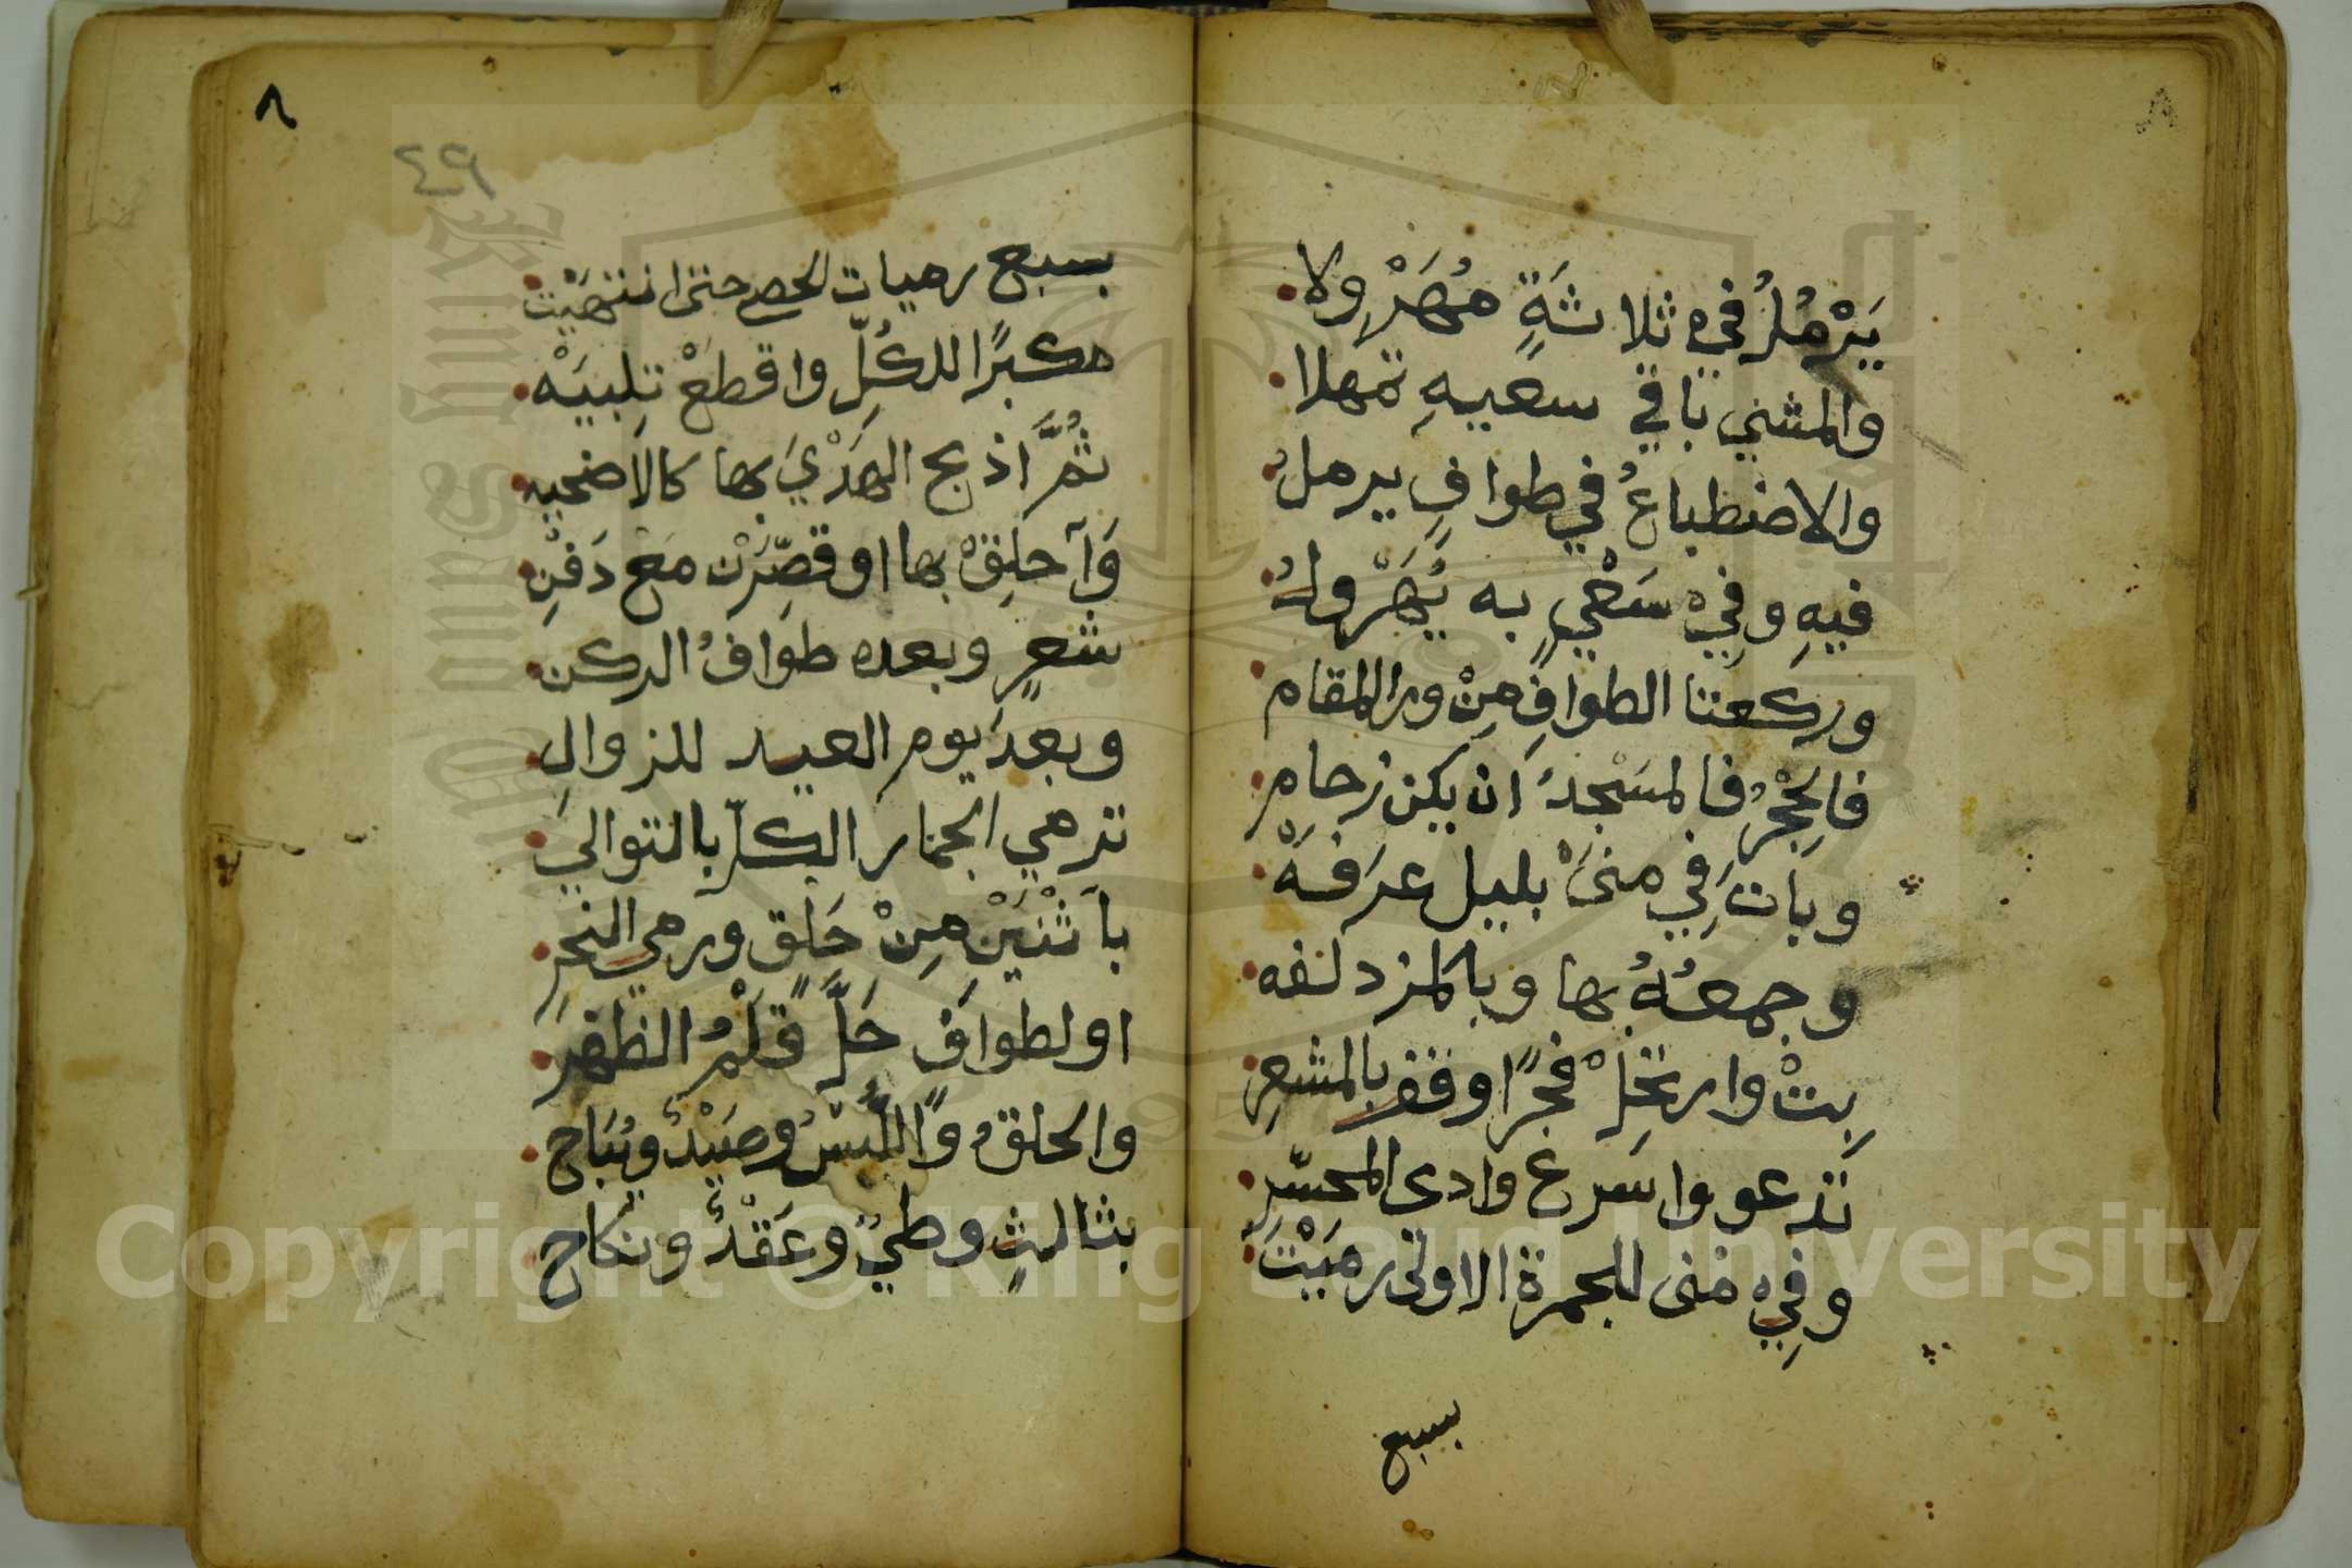 يَرْمُلُ فِي ثلاثةٍ مُهَرْوِلا
والمشيُ باقي سعيهِ تمهلا
والاضطباعُ في طوافٍ يرملُ
فيهِ وفِي سَعْيٍ به يُهَرْوِلُ
وركعتا الطوافِ مِنْ ورا المقام
فالحِجْرُ فالمسْجدُ ان يكن زحام
وباتَ في منىً بليل عرَفَهْ
وجمعُهُ بها وبالمزدلفه
بِتْ وارتحِلْ فجرًا وقف بالمشعرِ
تدعو واسرع وادى المحسّرِ
وفِي منى للجمرة الاولى رميْتَ
بسبع
٨
٤٩
بسبع رميات الحصى حتى انتهيْت
مكبرًا للكُلِّ واقطعْ تلبيَهْ
ثُمَّ اذبح الهدْيَ بها كالاضحيه
وَاحلِقْ بها او قصّرَنْ مع دَفنِ
شعرٍ وبعده طوافُ الركن
وبعدَ يوم العيد للزوالِ
ترمي الجمار الكلّ بالتوالي
باثْنَيْنِ مِنْ حَلقٍ ورمي النحرِ
او لطوافٍ حَلَّ قَلْمُ الظفر
والحلقُ واللّبْسُ وصَيْدٌ ويُبَاح
بثالثٍ وطيٌ وعَقْدٌ ونكاح
Copyright © King Saud University